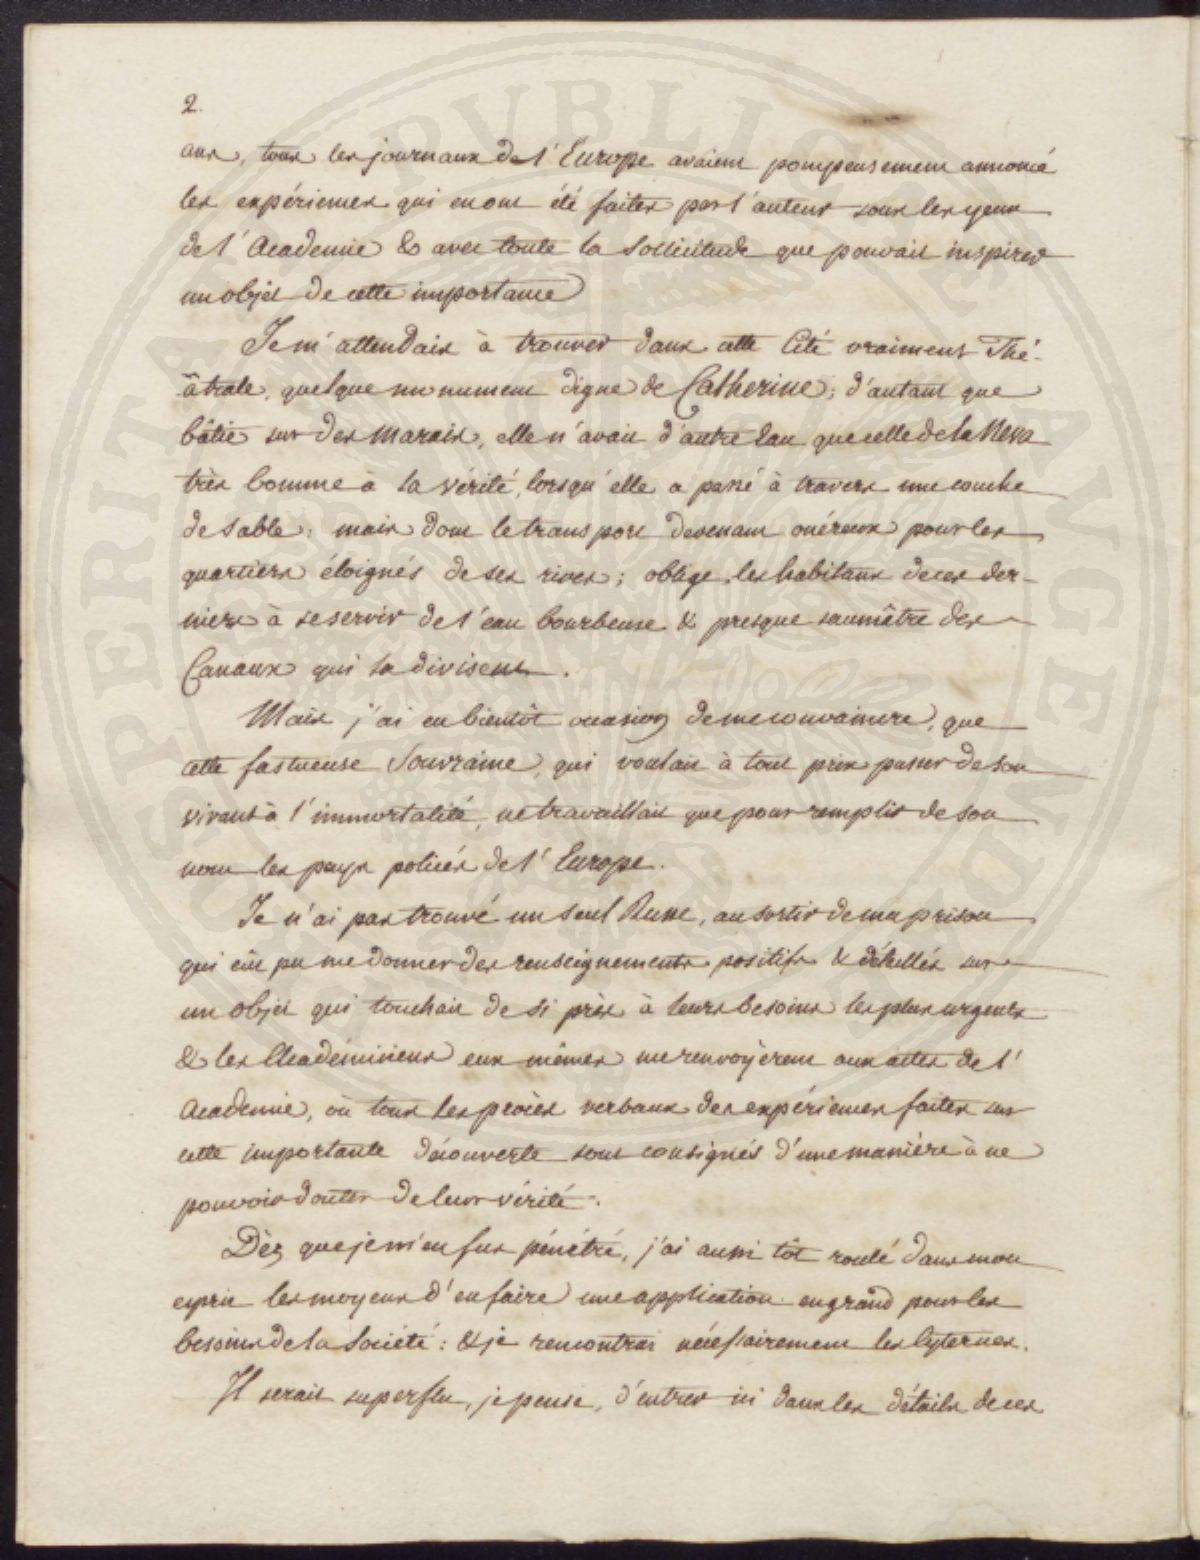 2.
ans, tous les journaux de l'Europe avaient pompeusement annoncé
les expériences qui en ont été faites par l'auteur sous les yeux
de l'Academie & avec toute la Sollicitude que pouvait inspirer
un objet de cette importance
Je m'attendais à trouver dans cette Cité vraiment Thé-
âtrale, quelque monument digne de Catherine; d'autant que
bâtie sur des Marais, elle n'avait d'autre Eau que celle de la Neva
très bonne à la vérité, lorsqu'elle a passé à travers une couche
de sable: mais dont le transport devenant onéreux pour les
quartiers éloignés de ses rives; oblige les habitans de ces der-
niers à se servir de l'eau bourbeuse & presque saumâtre des
Canaux qui la divisent.
Mais j'ai eu bientôt occasion de me convaincre, que
cette fastueuse Souvraine, qui voulait à tout prix passer de son
vivant à l'immortalité, ne travaillait que pour remplir de son
nom les pays policés de l'Europe.
Je n'ai pas trouvé un seul Russe, au sortir de ma prison
qui eût pu me donner des renseignements positifs & détaillés sur
un objet qui touchait de si près à leurs besoins les plus urgents
& les Académiciens eux mêmes me renvoyèrent aux actes de l'
Academie, où tous les procès verbaux des expériences faites sur
cette importante découverte sont consignés d'une manière à ne
pouvoir douter de leur vérité.
Dès que je m'en fus pénétré, j'ai aussi tôt roulé dans mon
esprit les moyens d'en faire une application en grand pour les
besoins de la Société: & je rencontrai nécessairement les Cyternes.
Il serait superflu, je pense, d'entrer ici dans les détails de ces
PROSPERITATI PVBLICAE AVGENDAE